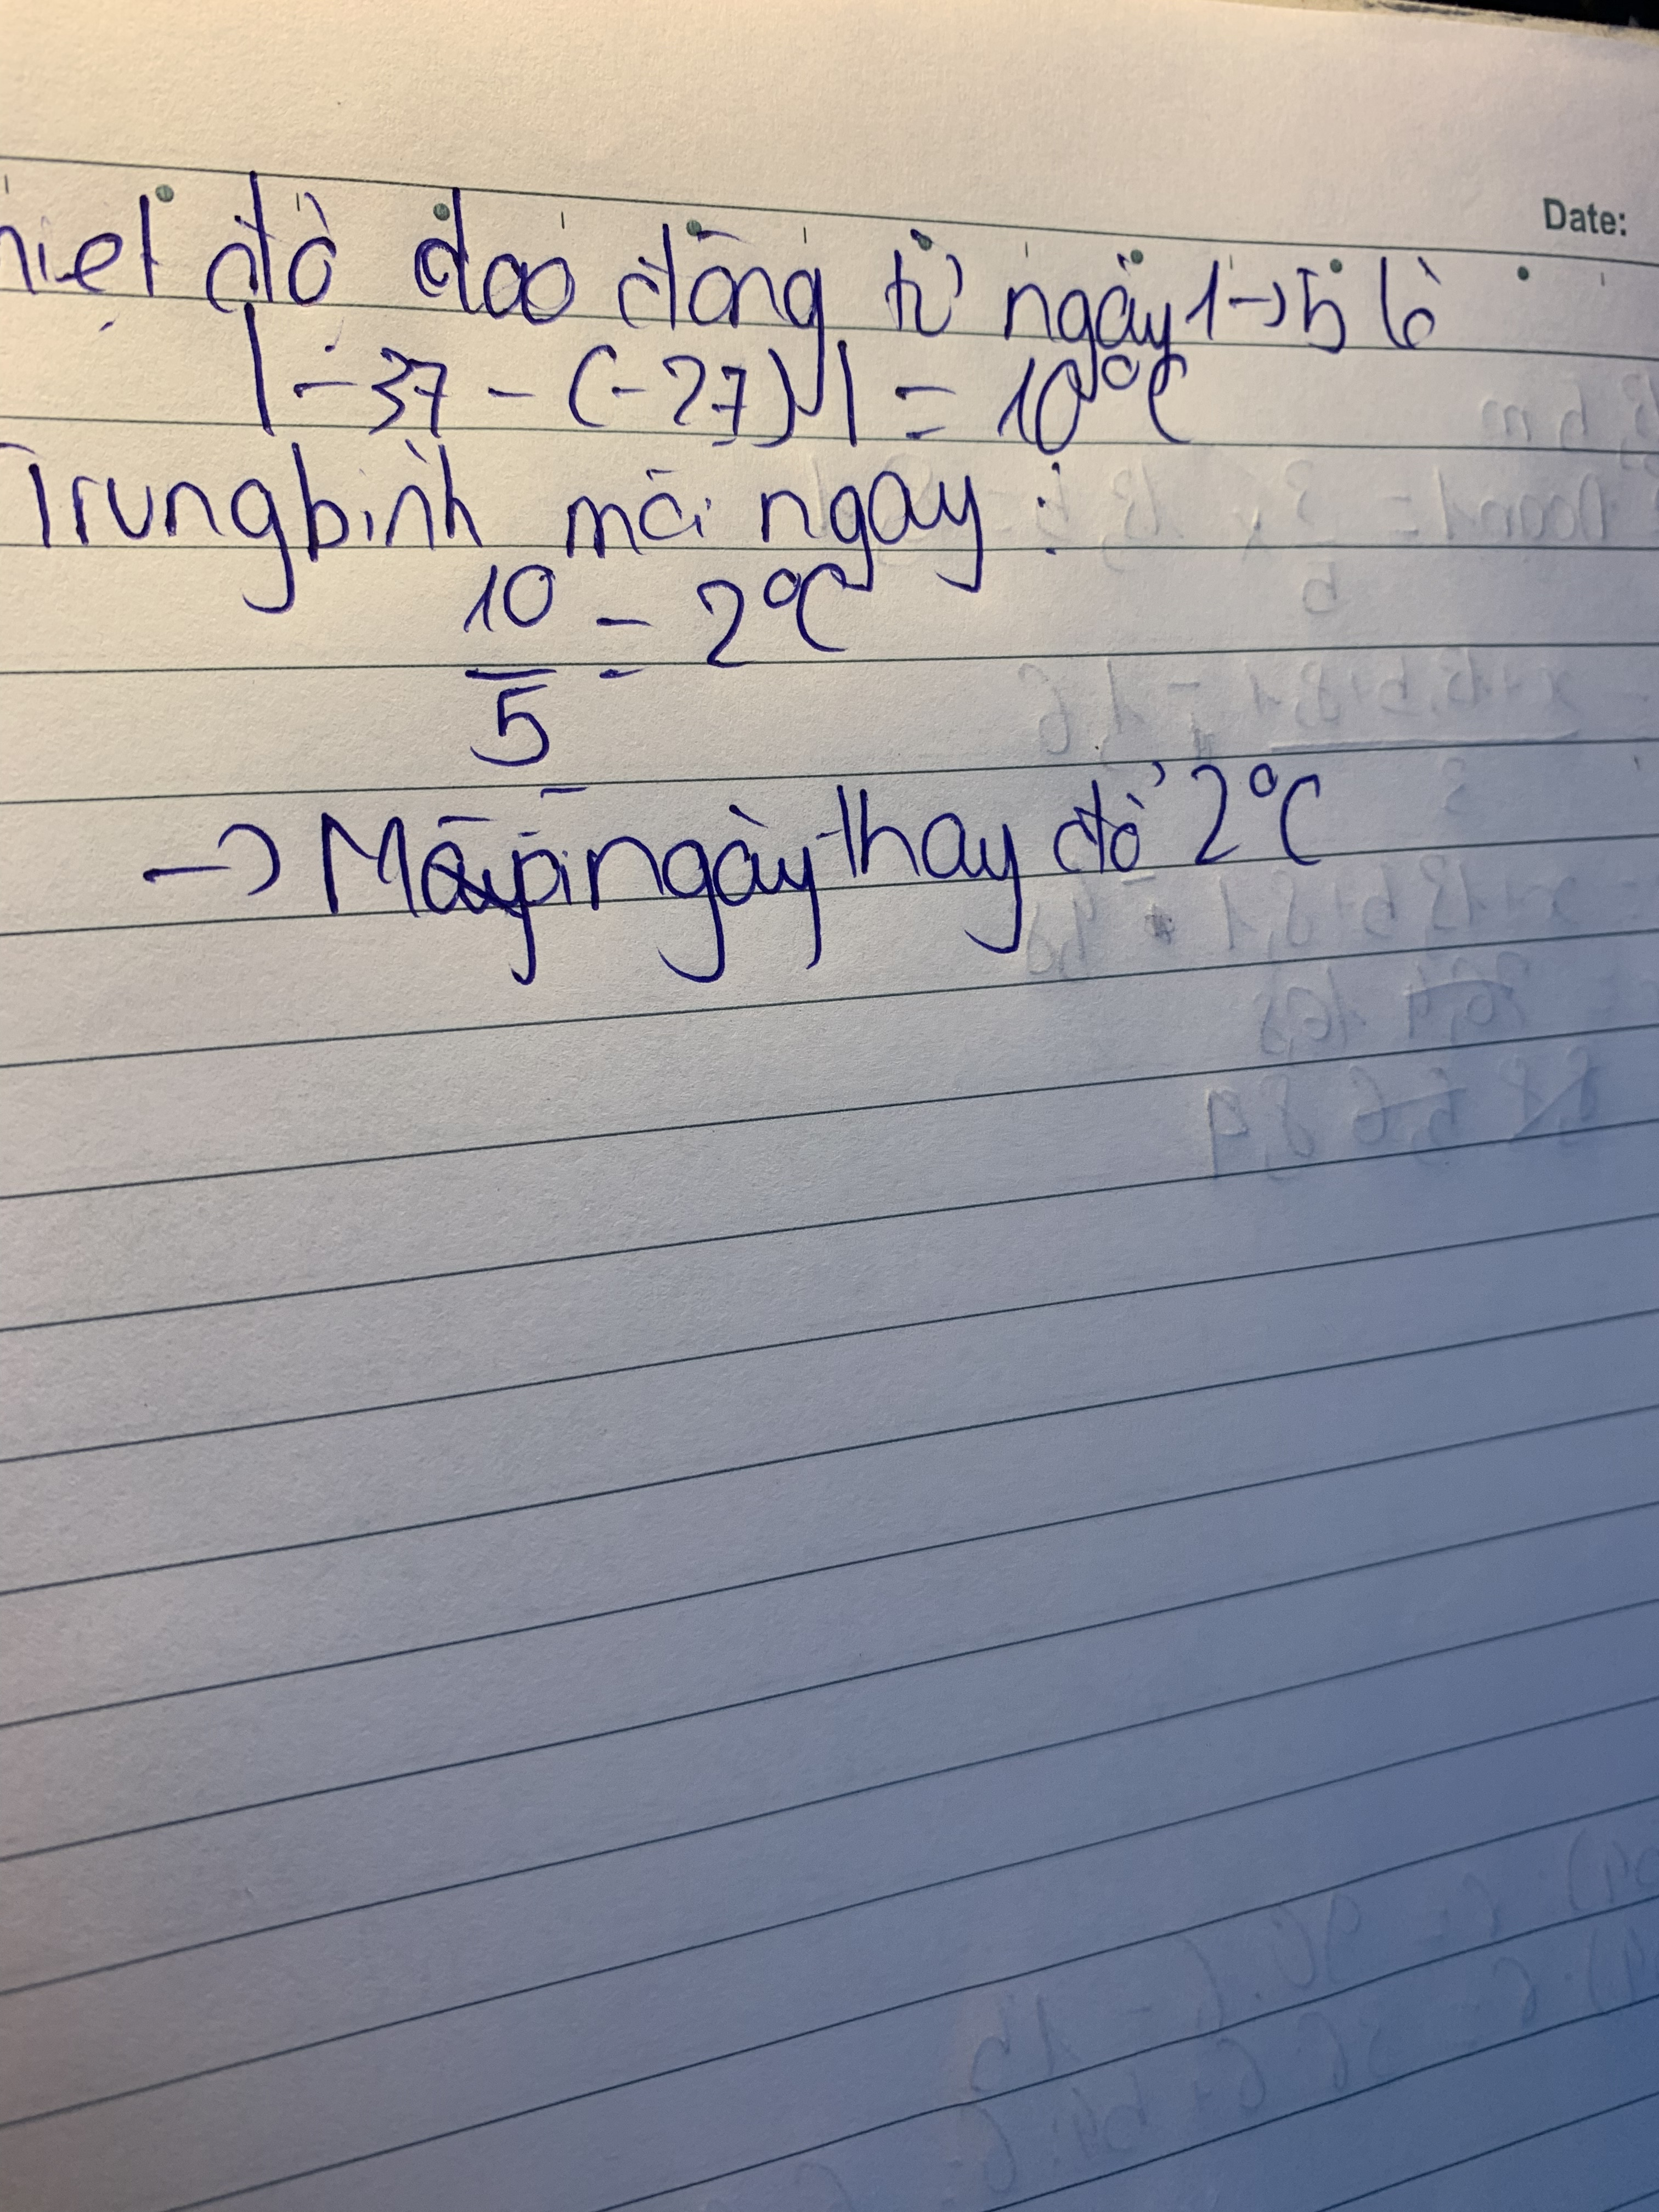 Date:
nhiệt độ dao động từ ngày 1→5 là
|-37 - (-27)| = 10°C
Trung bình mỗi ngày :
10/5 = 2°C
→ Mỗi ngày thay đổ 2°C